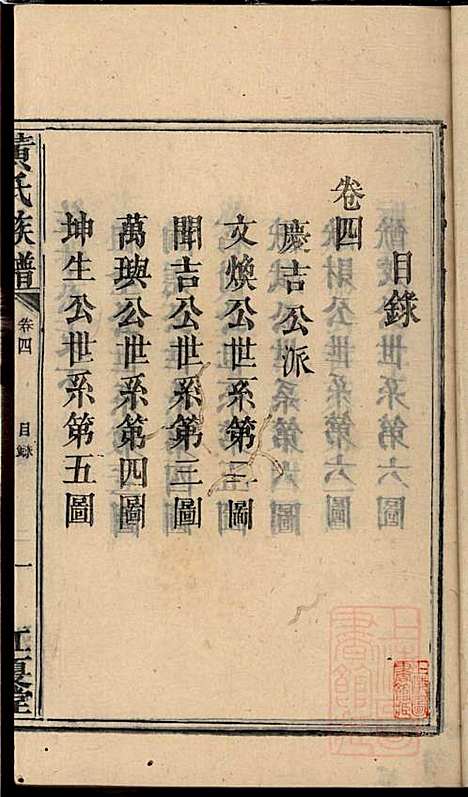 目錄
卷四
慶吉公派
文煥公世系第二圖
聞吉公世系第三圖
萬璵公世系第四圖
坤生公世系第五圖
黃氏族譜
卷四
目錄
一
江夏堂